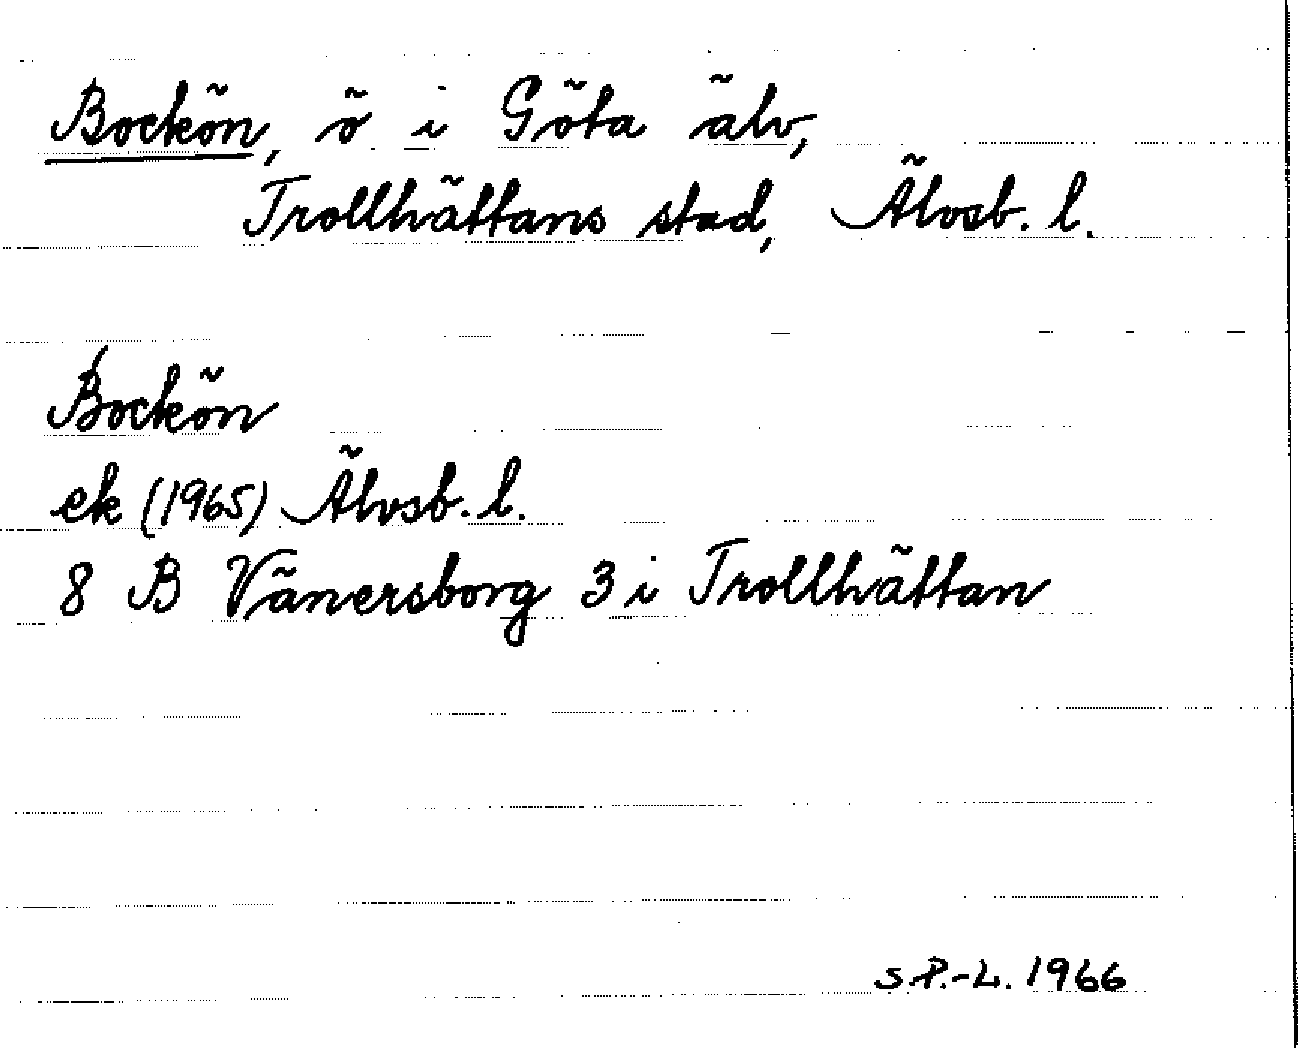 Bockön, ö i Göta älv,
Trollhättans stad, Älvsb. l.
Bockön
ek (1965) Älvsb. l.
8 B Vänersborg 3 i Trollhättan
S.P.-L. 1966